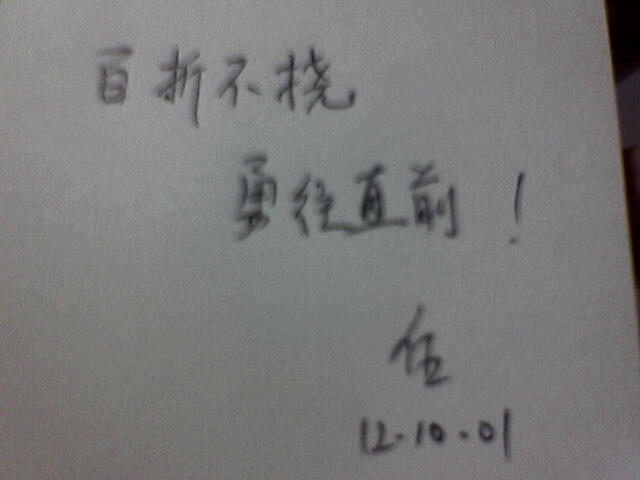 百折不挠
勇往直前！
伍
12.10.01